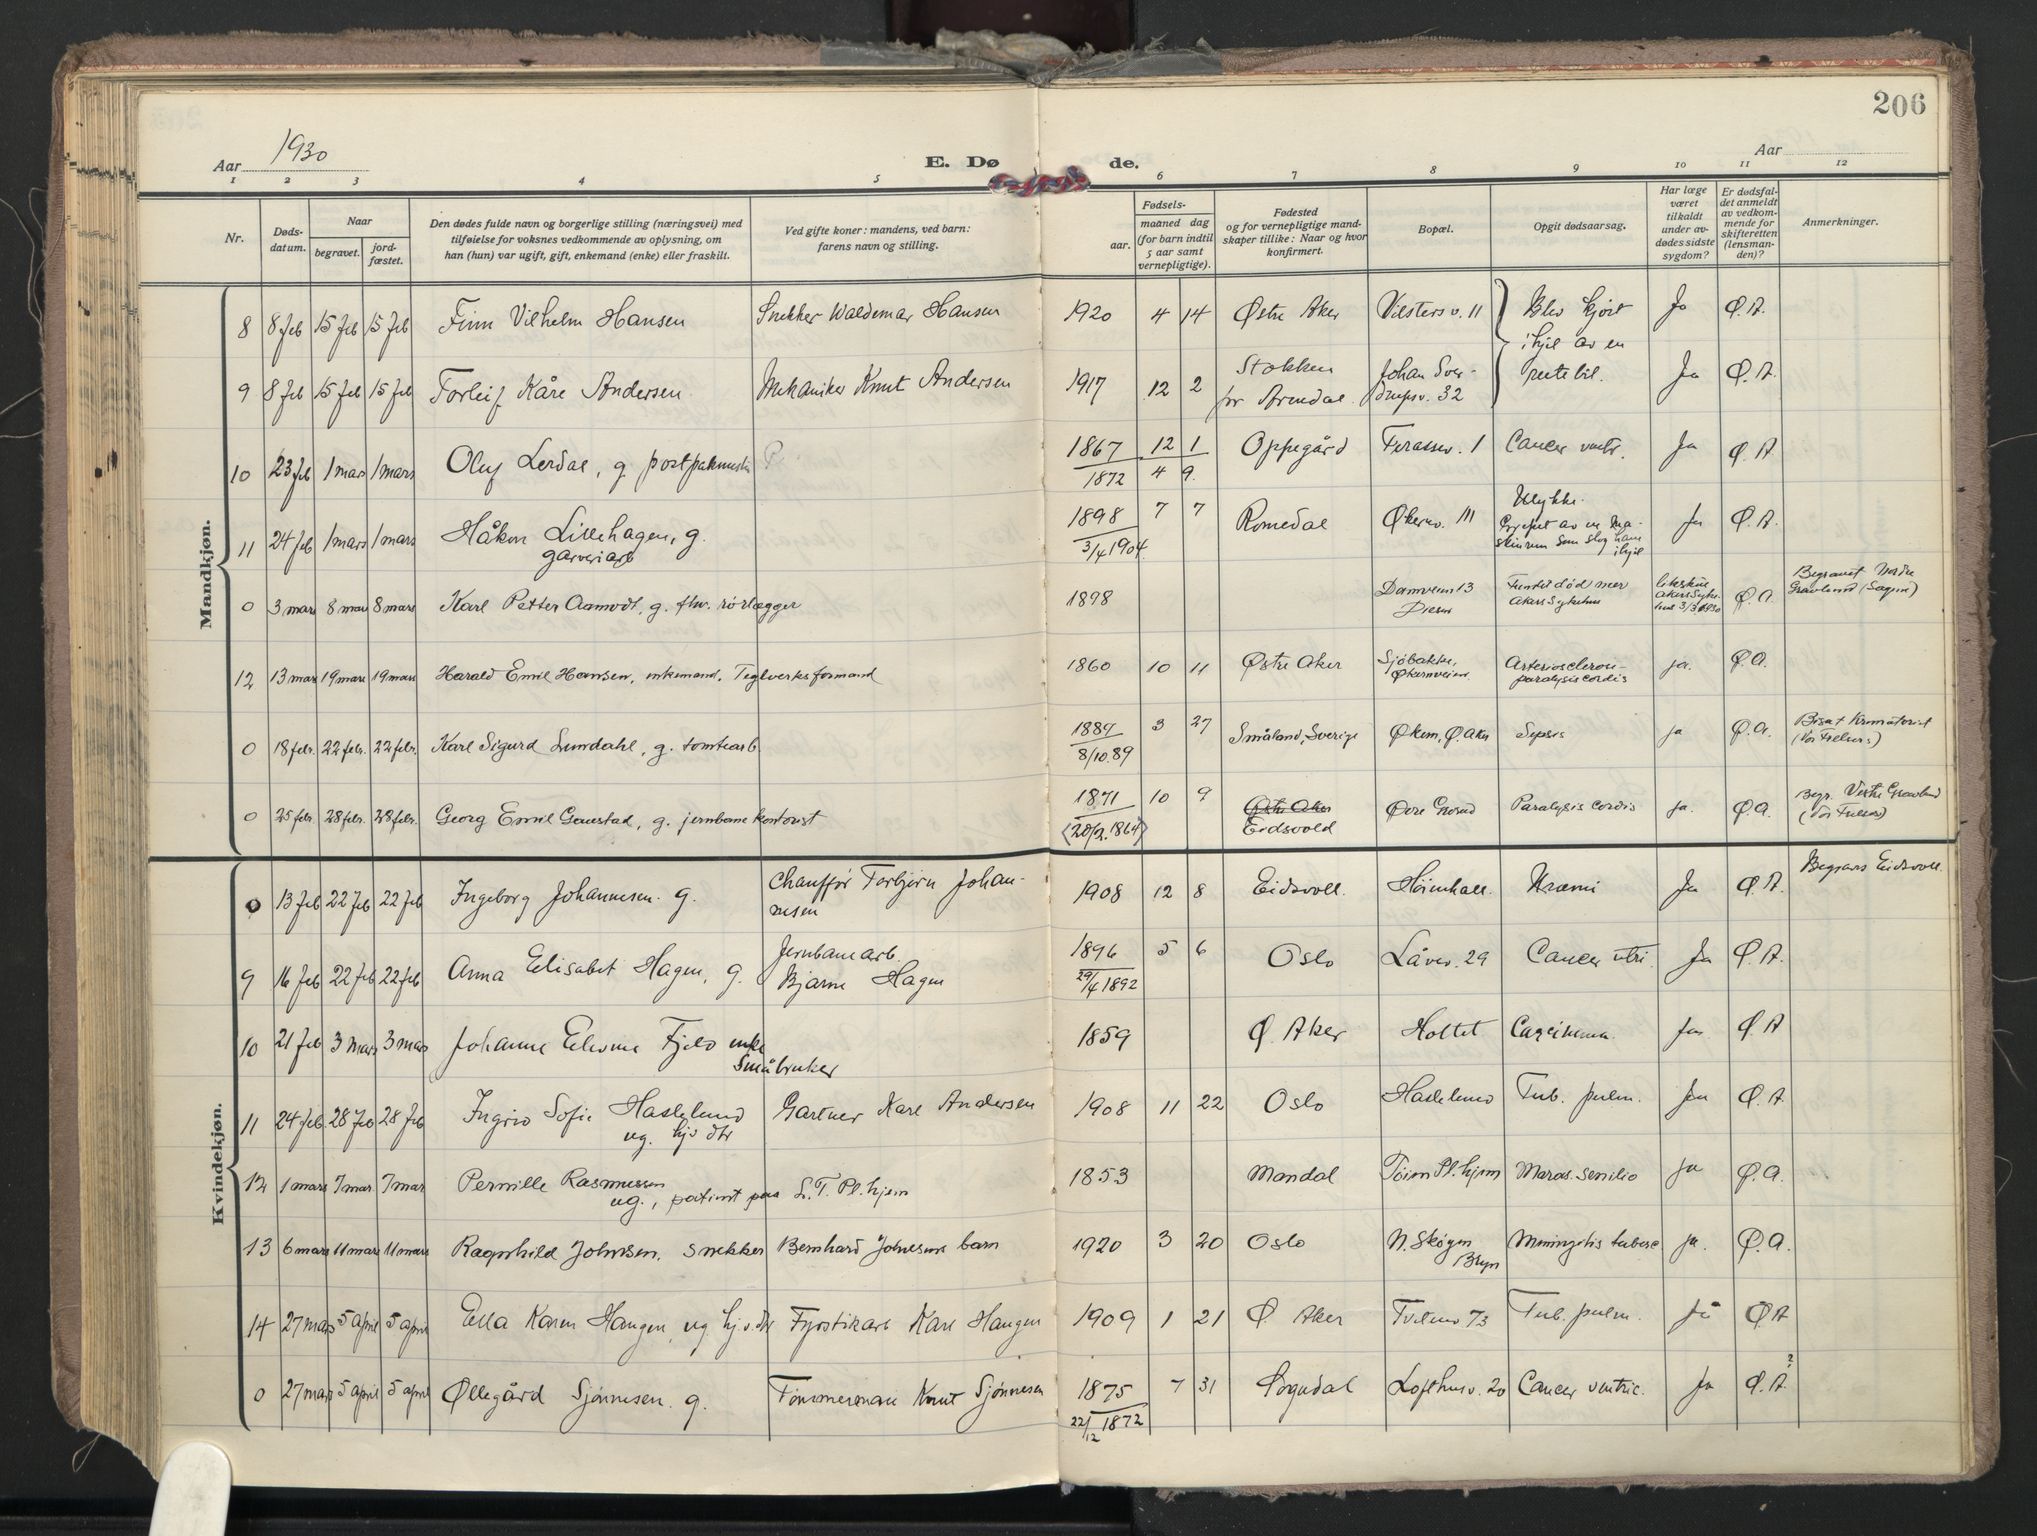 206
Aar 1930
E. Dø de.
Aar
1 2 3 4 5 6 7 8 9 10 11 12
Nr.
Døds-
datum.
Naar
begravet.
jord-
fæstet.
Den dødes fulde navn og borgerlige stilling (næringsvei) med
tilføielse for voksnes vedkommende av oplysning, om
han (hun) var ugift, gift, enkemand (enke) eller fraskilt.
Ved gifte koner: mandens, ved barn:
farens navn og stilling.
Fødsels-
aar. maaned dag
(for barn indtil
5 aar samt
vernepligtige).
Fødested
og for vernepligtige mand-
skaper tillike: Naar og hvor
konfirmert.
Bopæl.
Opgit dødsaarsag.
Har læge
været
tilkaldt
under av-
dødes sidste
sygdom?
Er dødsfal-
det anmeldt
av vedkom-
mende for
skifteretten
(lensman-
den)?
Anmerkninger.
Mandkjøn.
8 8 feb 15 feb 15 feb Finn Vilhelm Hansen Snekker Waldemar Hansen 1920 4 14 Østre Aker Vilsters v. 11 Blev kjørt Ja Ø.A.
ihjel av en
9 8 feb 15 feb 15 feb Torleif Kåre Andersen Mekaniker Knut Andersen 1917 12 2 Stokken Johan Sver- rutebil. Ja Ø.A.
for Arendal. drupsv. 32
10 23 feb 1 mars 1 mars Oluf Lerdal, g. 1867 12 1 Oppegård Terassev. 1 Cancer ventr. Ja Ø.A.
1872 4 9.
11 24 feb 1 mars 1 mars Håkon Lillehagen, g. 1898 7 7 Romedal Økernv. 111 Ulykke. Ja Ø.A.
garveriarb 3/4 1904. av en ma-
skinrem som slog ham
ihjel
0 3 mars 8 mars 8 mars Karl Petter Aamodt, g. fhv. rørlægger 1898 Damveien 13 Fundet død nær Ø.A. Begravet Nordre
Disen Akers Sykehus Akers Syke- Gravlund (Sagene)
hus 3/3 1930
12 13 mars 19 mars 19 mars Harald Emil Hansen, enkemand. Teglverksformand 1860 10 11 Østre Aker Sjøbakke, Arterioscleros- ja. Ø.A.
Økernveien. paralysis cordis
0 18 febr. 22 febr. 22 febr. Karl Sigurd Lundahl, g. tomtearb. 1889 3 27 Småland, Sverige Økern, Ø. Aker Sepsis ja Ø.A. Bisat Krematoriet
8/10.89 (Vor Frelsers)
0 25 febr. 28 febr. 28 febr. Georg Emil Gaustad, g. jernbanekontorist 1871 10 9 Østre Aker Øvre Grorud Paralysis cordis ja Ø.A. Begr. Vestre Gravlund
(20/2.1864) Eidsvold (Vor Frelsers)
Kvindekjøn.
0 13 feb 22 feb 22 feb Ingeborg Johannesen. g. Chauffør Torbjørn Johan- 1908 12 8 Eidsvoll. Høienhall. Uræmi Ja Ø.A. Begraves Eidsvoll.
nesen
9 16 feb 22 feb 22 feb Anna Elisabet Hagen, g. Jernbanearb. 1896 5 6 Oslo Låvev. 29 Cancer utri. Ja Ø.A.
Bjarne Hagen 29/4 1892
10 21 feb 3 mars 3 mars Johanne Fjeld enke 1859 Ø. Aker Holtet Carcinoma. Ja Ø.A
Småbruker
11 24 feb. 28 feb 28 feb Ingrid Sofie Haslelund Gartner Karl Andersen 1908 11 22 Oslo Haslelund Tub. pulm. Ja Ø.A.
ug. hjv dtr
12 1 mars 7 mar 7 mar Pernille Rasmussen 1853 Mandal Tøien Pl. hjem Maras. senilis ja Ø.A.
ug., patient paa S.T. Pl. hjem
13 6 mars 11 mars 11 mars Ragnhild Johnsen. snekker Bernhard Johnsens barn 1920 3 20 Oslo N. Skøyen Meningitis tuberc. ja. Ø.A.
Bryn
14 27 mars 5 april 5 april Ella Karin Haugen, ug hj.v.dtr Fyrstikarb Karl Haugen 1909 1 21 Ø. Aker Tvetenv 73 Tub. pulm. Ja Ø.A
0 27 mars 5 april 5 april Øllegård Sjønnesen. g. Tømmermann Knut Sjønnesen 1875 7 31 Sogndal Lofthusv. 20 Cancer ventric. Ja Ø.A.?
22/12 1872